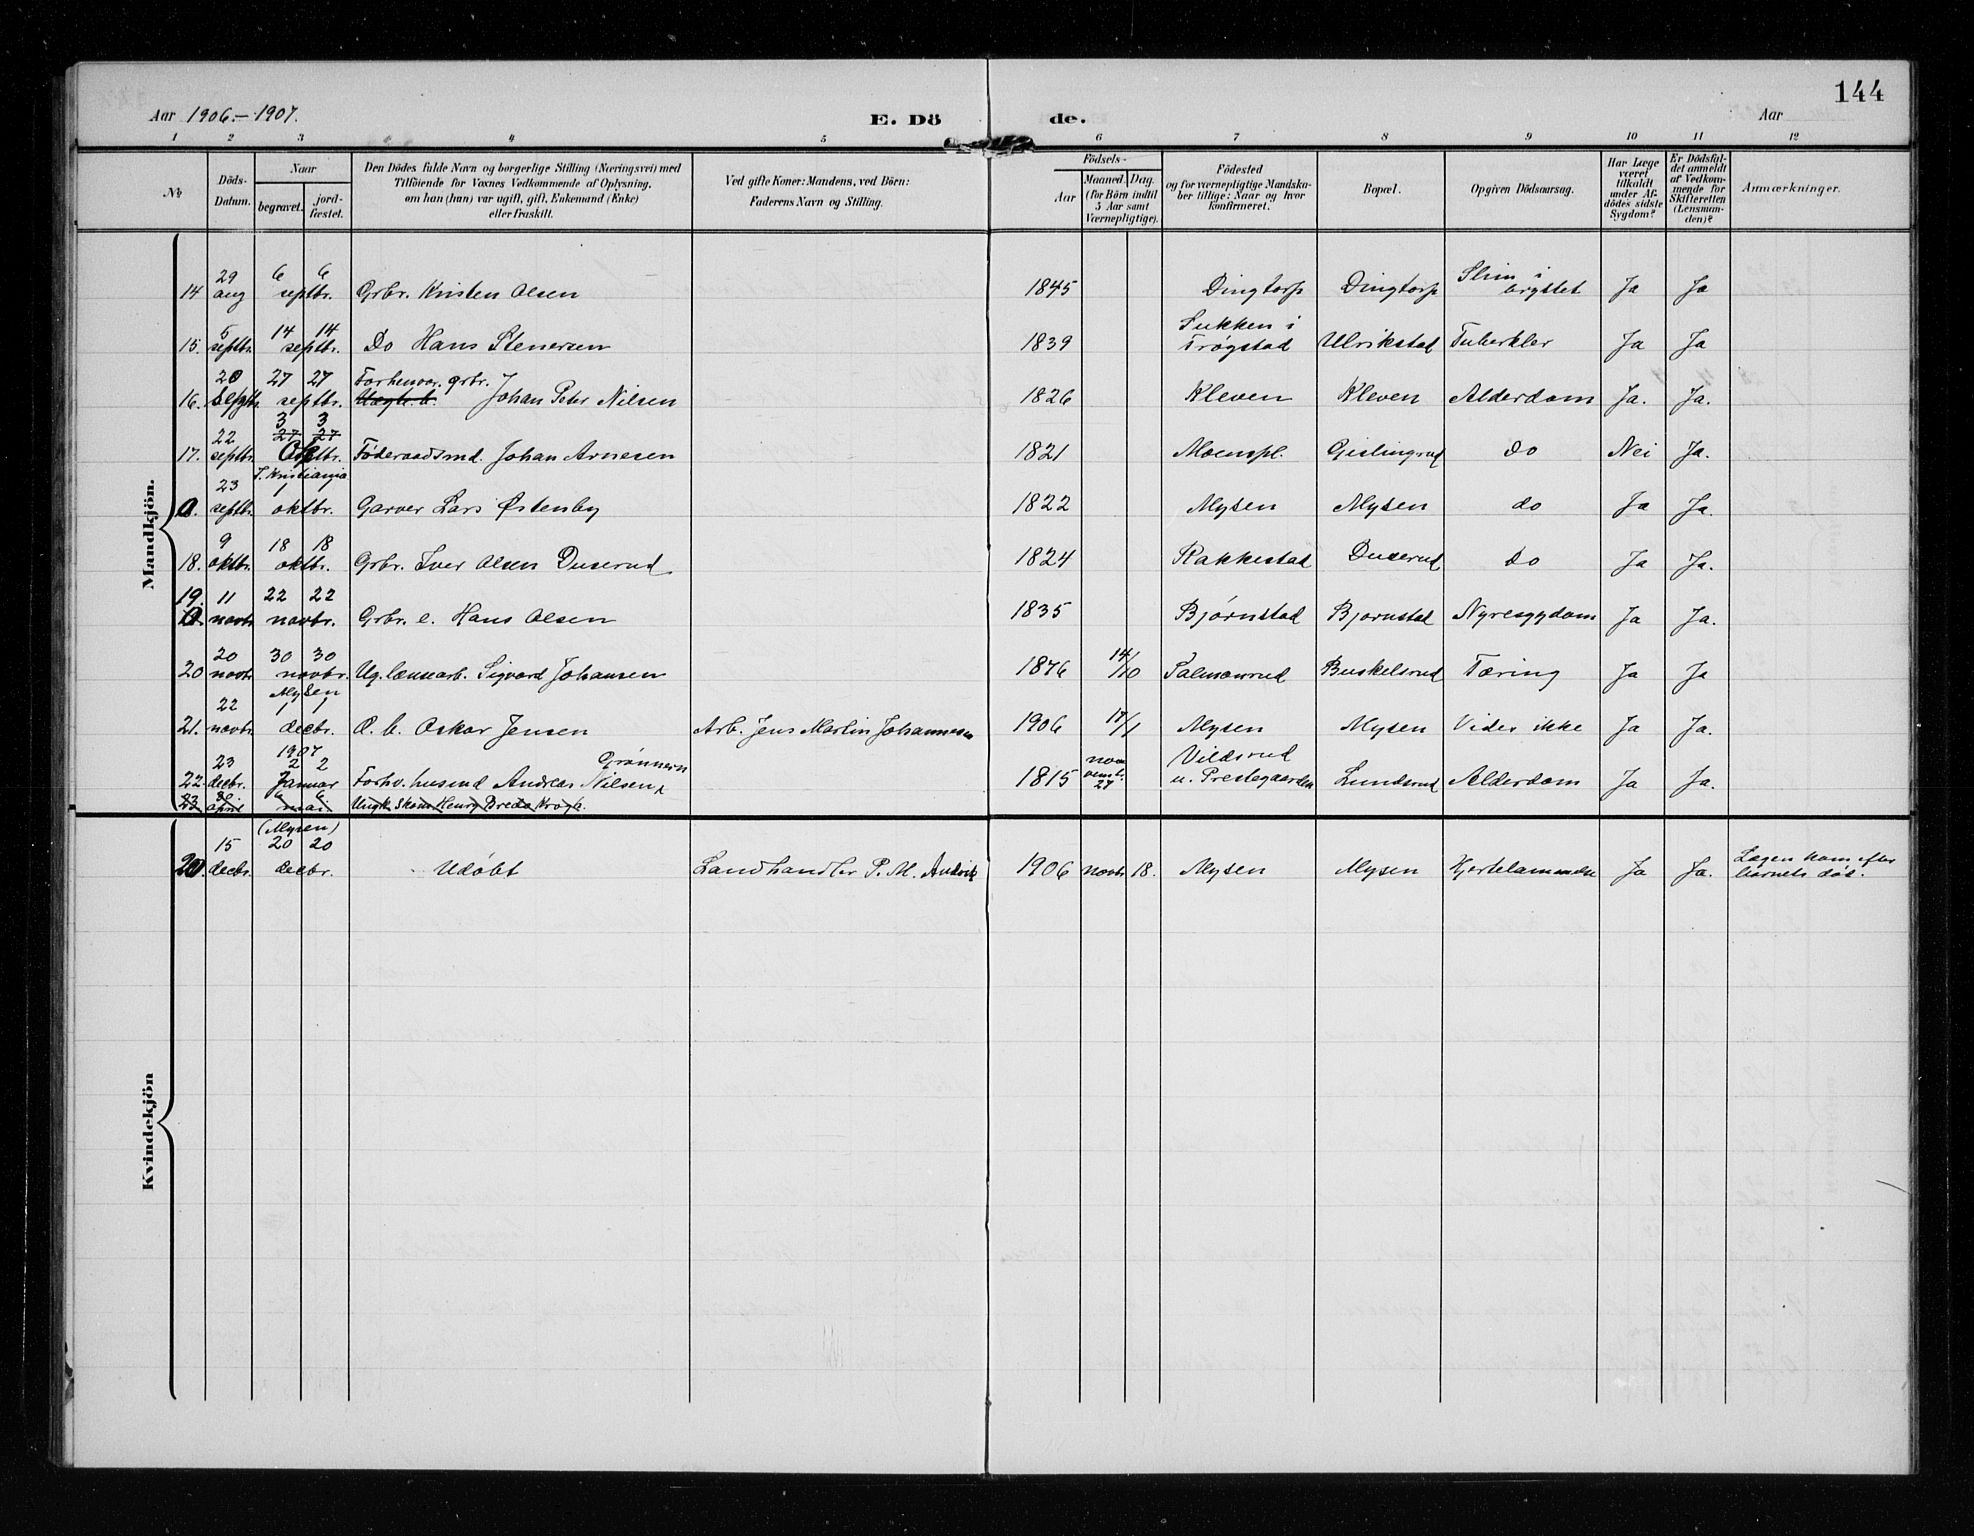 144
Aar 1906.-1907. E. Dö de. Aar
1 2 3 4 5 6 7 8 9 10 11 12
№
Döds-Datum.
Naar
begravet.
jord-fæstet.
Den Dödes fulde Navn og borgerlige Stilling (Næringsvei) med
Tilföiende for Voxnes Vedkommende af Oplysning,
om han (hun) var ugift, gift, Enkemand (Enke)
eller fraskilt.
Ved gifte Koner: Mandens, ved Börn:
Faderens Navn og Stilling.
Födsels-
Aar
Maaned. Dag.
(for Börn indtil
5 Aar samt
Værnepligtige).
Födested
og for værnepligtige Mandska-
ber tillige: Naar og hvor
konfirmeret.
Bopæl.
Opgiven Dödsaarsag.
Har Læge
været
tilkaldt
under Af-
dödes sidste
Sygdom?
Er Dödsfal-
det anmeldt
af Vedkom-
mende for
Skifteretten
(Lensman-
den)?
Anmærkninger.
Mandkjön.
29 6 6 Slim i
14 aug septbr. Grbr. Kristen Olsen 1845 Dingtorp Dingtorp brystet Ja Ja
5 14 14 Sukken i
15. septbr. septbr. Do Hans Stenersen 1839 Trøgstad Ulrikstad Tuberkler Ja Ja
20 27 27 Forhenvar. grbr.
16. septbr. septbr. Johan Peter Nilsen 1826 Kleven Kleven Alderdom Ja. Ja.
3 3
22 27 27
17. septbr. Oktbr. Føderaadsmd. Johan Arnesen 1821 Moenspl. Gislingrud Do Nei Ja.
T. Kristiania
23 1 1
0. septbr. oktbr. Garver Lars Østenby 1822 Mysen Mysen do Ja Ja.
9 18 18
18. oktbr. oktbr. Grbr. Iver Olsen Duserud 1824 Rakkestad Duserud Do Ja Ja.
19. 11 22 22
0. novbr. novbr. Grbr. e. Hans Olsen 1835 Bjørnstad Bjørnstad Nyresygdom Ja Ja.
20 30 30 14
20 novbr. novbr. Ug. lænsarb. Sigvard Johansen 1876 /10 Salmonrud Buskelsrud Tæring Ja Ja
Mysen
22 1 1
21. novbr. decbr. O. b. Oskar Jensen Arb. Jens Martin Johannesen 1906 17/1 Mysen Mysen Vides ikke Ja Ja.
1907
23 2 2 Grønnern novemb. Vildsrud
22. decbr. Januar Forhv. husmd Andreas Nilsen 1815 27 u. Prestegaarden Lundsrud Alderdom Ja Ja.
30 6 6
23 april mai Ungk. Skom Henry Breda Krogh.
Kvindekjön
(Mysen)
15 20 20 Lægen kom efter
20. decbr. decbr. Udøbt Landhandler P. M. Andvik 1906 novbr. 18. Mysen Mysen Hjertelammelse Ja Ja. barnets død.